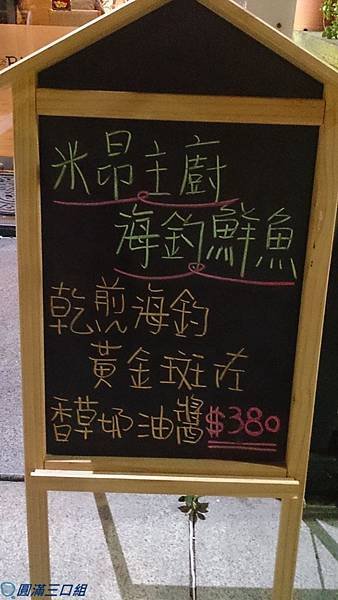 米昂主廚
海釣鮮魚
乾煎海釣
黃金斑左
香草奶油醬$380
圓滿三口組